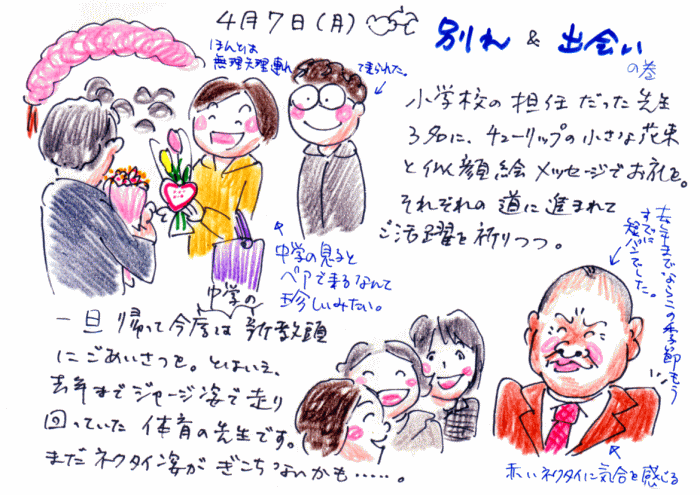 4月7日(月)
別れ & 出会い
の巻
ほんとは
無理矢理連れ
て来られた。
小学校の担任だった先生
3名に、チューリップの小さな花束
と似顔絵メッセージでお礼を。
それぞれの道に進まれて
ご活躍を祈りつつ。
中学の息子と
ペアで来るなんて
珍しいみたい。
去年までならこの季節もう
すでに短パンでした。
中学の
一旦帰って今度は新教頭
にごあいさつを。とはいえ、
去年までジャージ姿で走り
回っていた体育の先生です。
まだネクタイ姿がぎこちないかも……。
赤いネクタイに気合を感じる